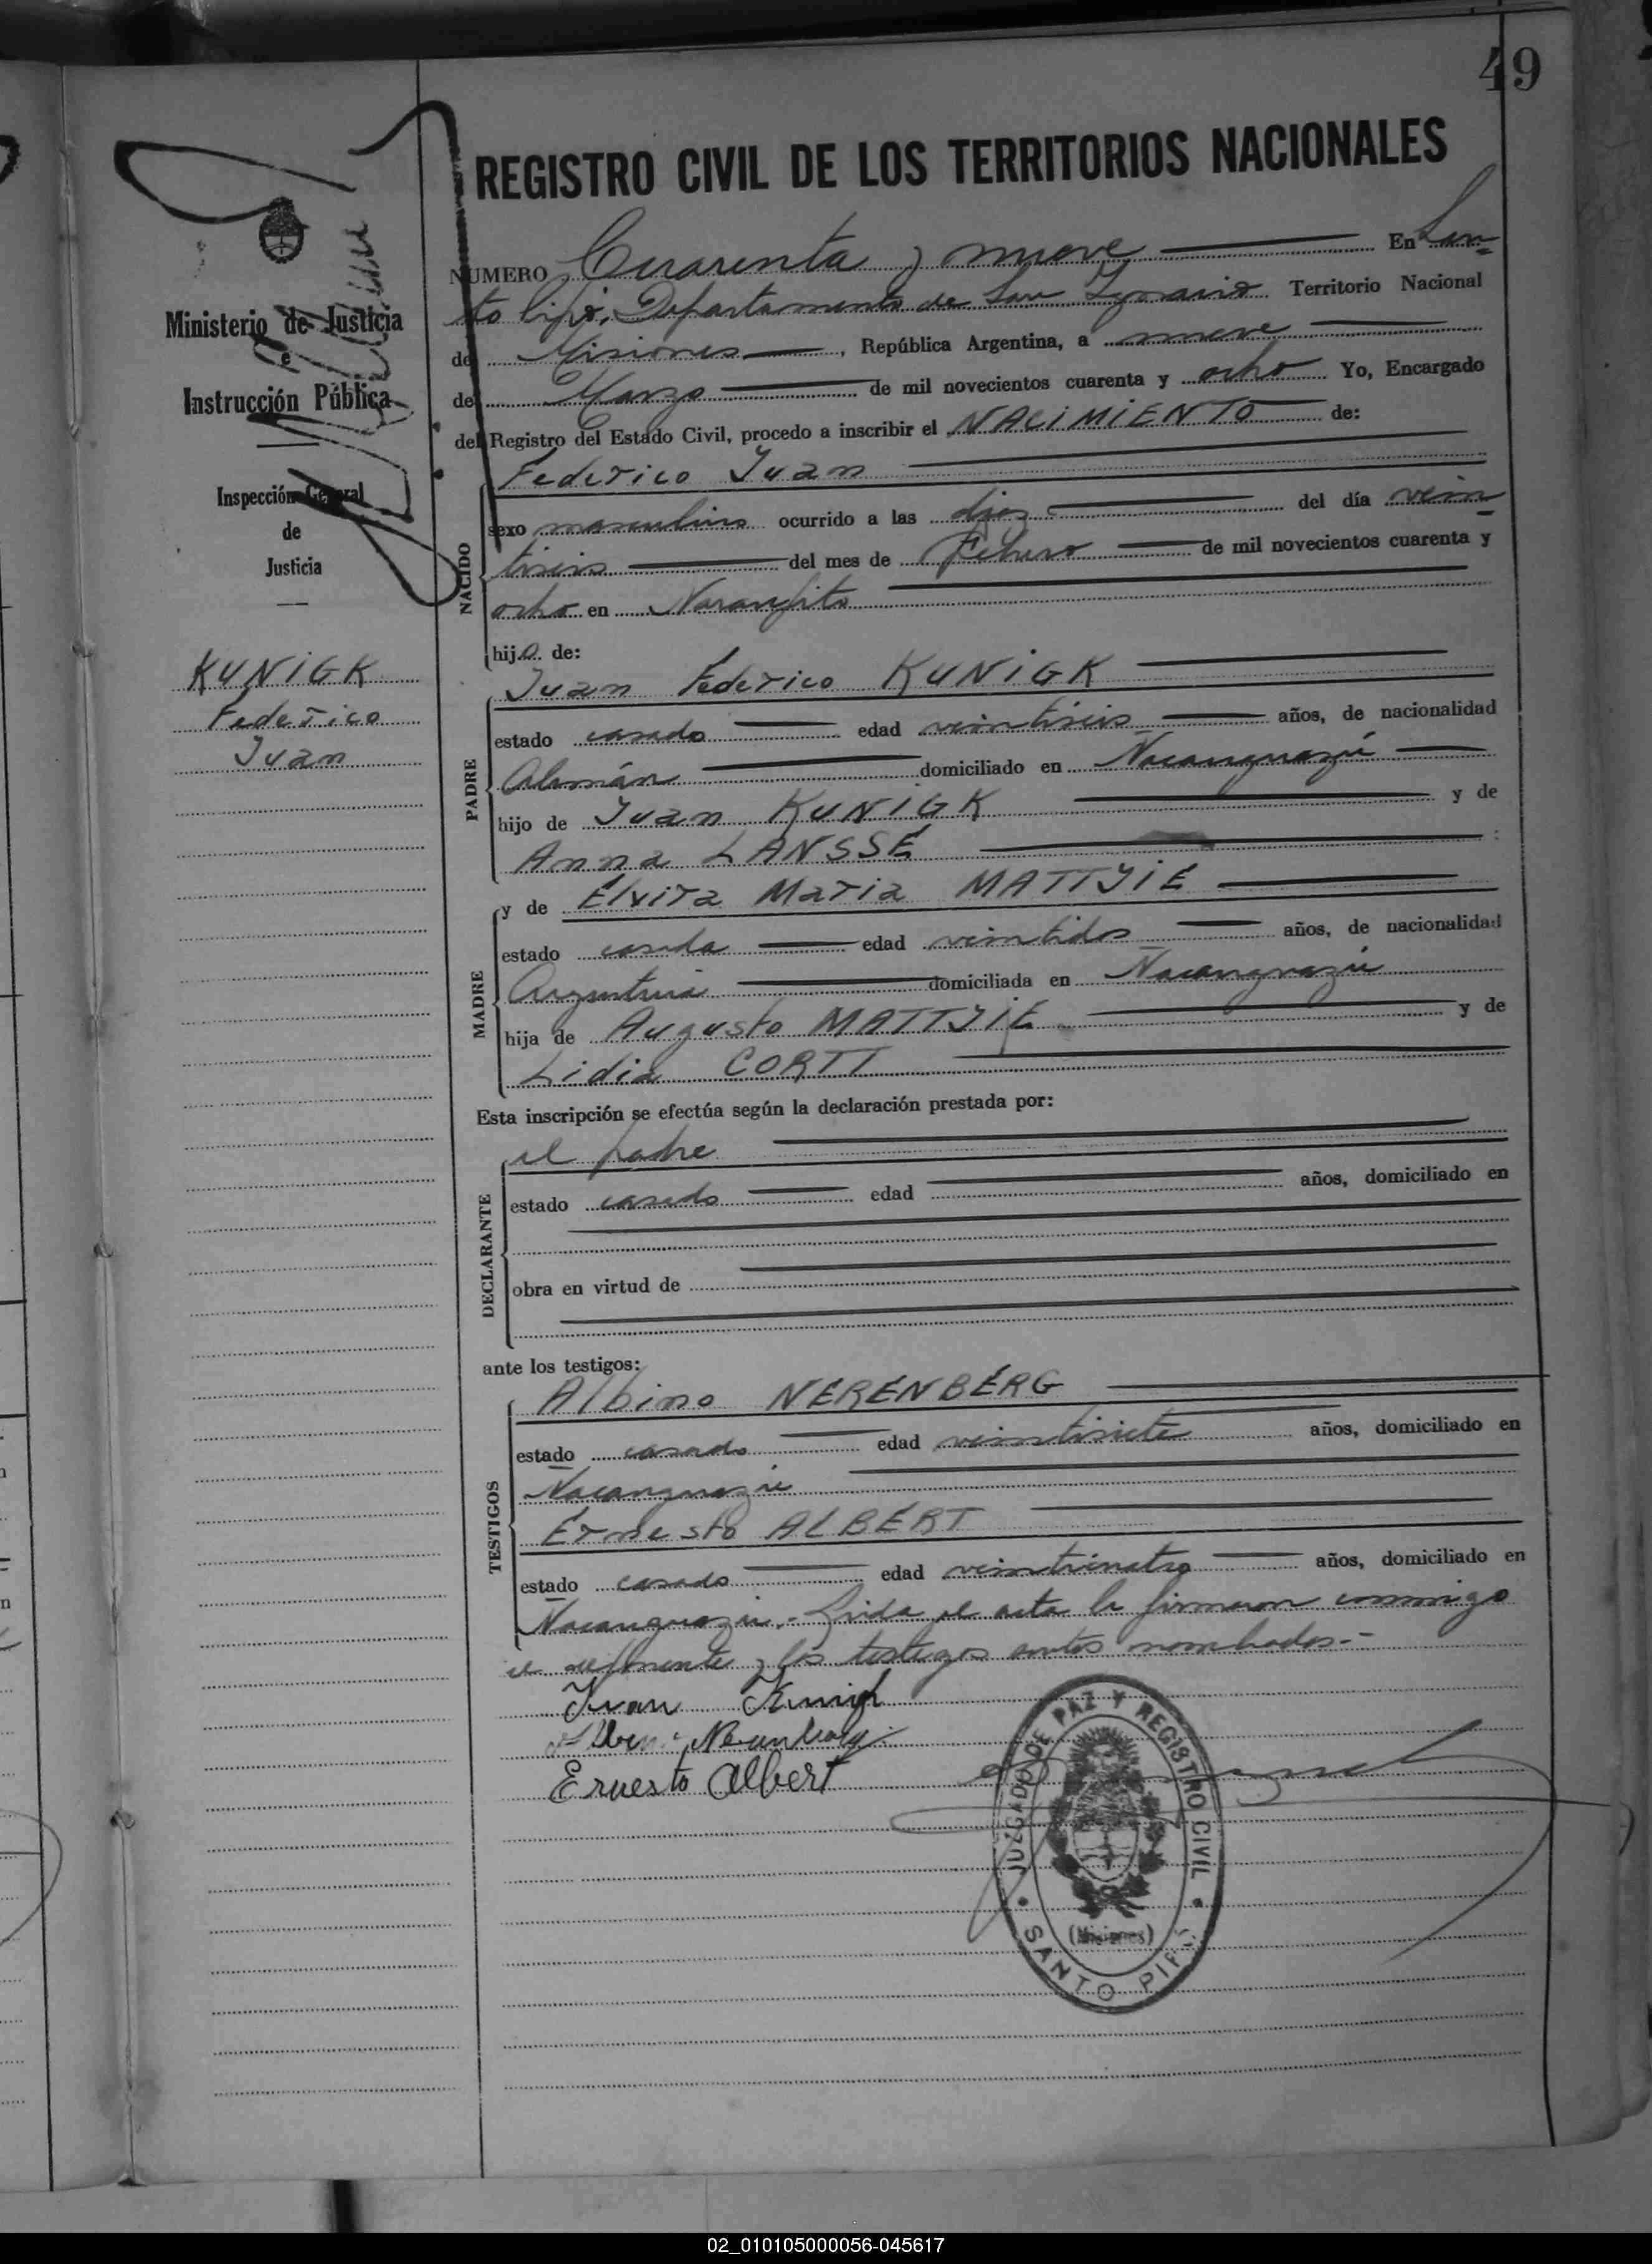 49
REGISTRO CIVIL DE LOS TERRITORIOS NACIONALES
Ministerio de Justicia
e
Instrucción Pública
Inspección General
de
Justicia
KUNIGK
Federico
Juan
NUMERO Cuarenta y nueve En San-
to Pipó, Departamento de San Ignacio Territorio Nacional
de Misiones, República Argentina, a nueve
de Marzo de mil novecientos cuarenta y ocho Yo, Encargado
del Registro del Estado Civil, procedo a inscribir el NACIMIENTO de:
NACIDO
Federico Juan
sexo masculino ocurrido a las diez del día vein-
tiseis del mes de Febrero de mil novecientos cuarenta y
ocho en Naranjito
hijo de:
PADRE
Juan Federico KUNIGK
estado casado edad veintiseis años, de nacionalidad
Alemán domiciliado en Ñacanguazú
hijo de Juan KUNIGK y de
Anna LANSSE :
MADRE
y de Elvira Maria MATTJIE
estado casada edad veintidos años, de nacionalidad
Argentina domiciliada en Ñacanguazú
hija de Augusto MATTJIE y de
Lidia CORTT
Esta inscripción se efectúa según la declaración prestada por:
DECLARANTE
el padre
estado casado edad años, domiciliado en
obra en virtud de
ante los testigos:
TESTIGOS
Albino NERENBERG
estado casado edad veintisiete años, domiciliado en
Ñacanguazú
Ernesto ALBERT
estado casado edad veinticuatro años, domiciliado en
Ñacanguazú.- Leida el acta la firmaron conmigo
el exponente y los testigos antes nombrados.-
Juan Kunigk
Ernesto Albert
JUZGADO DE PAZ Y REGISTRO CIVIL
(Misiones)
SANTO PIPÓ
02_010105000056-045617